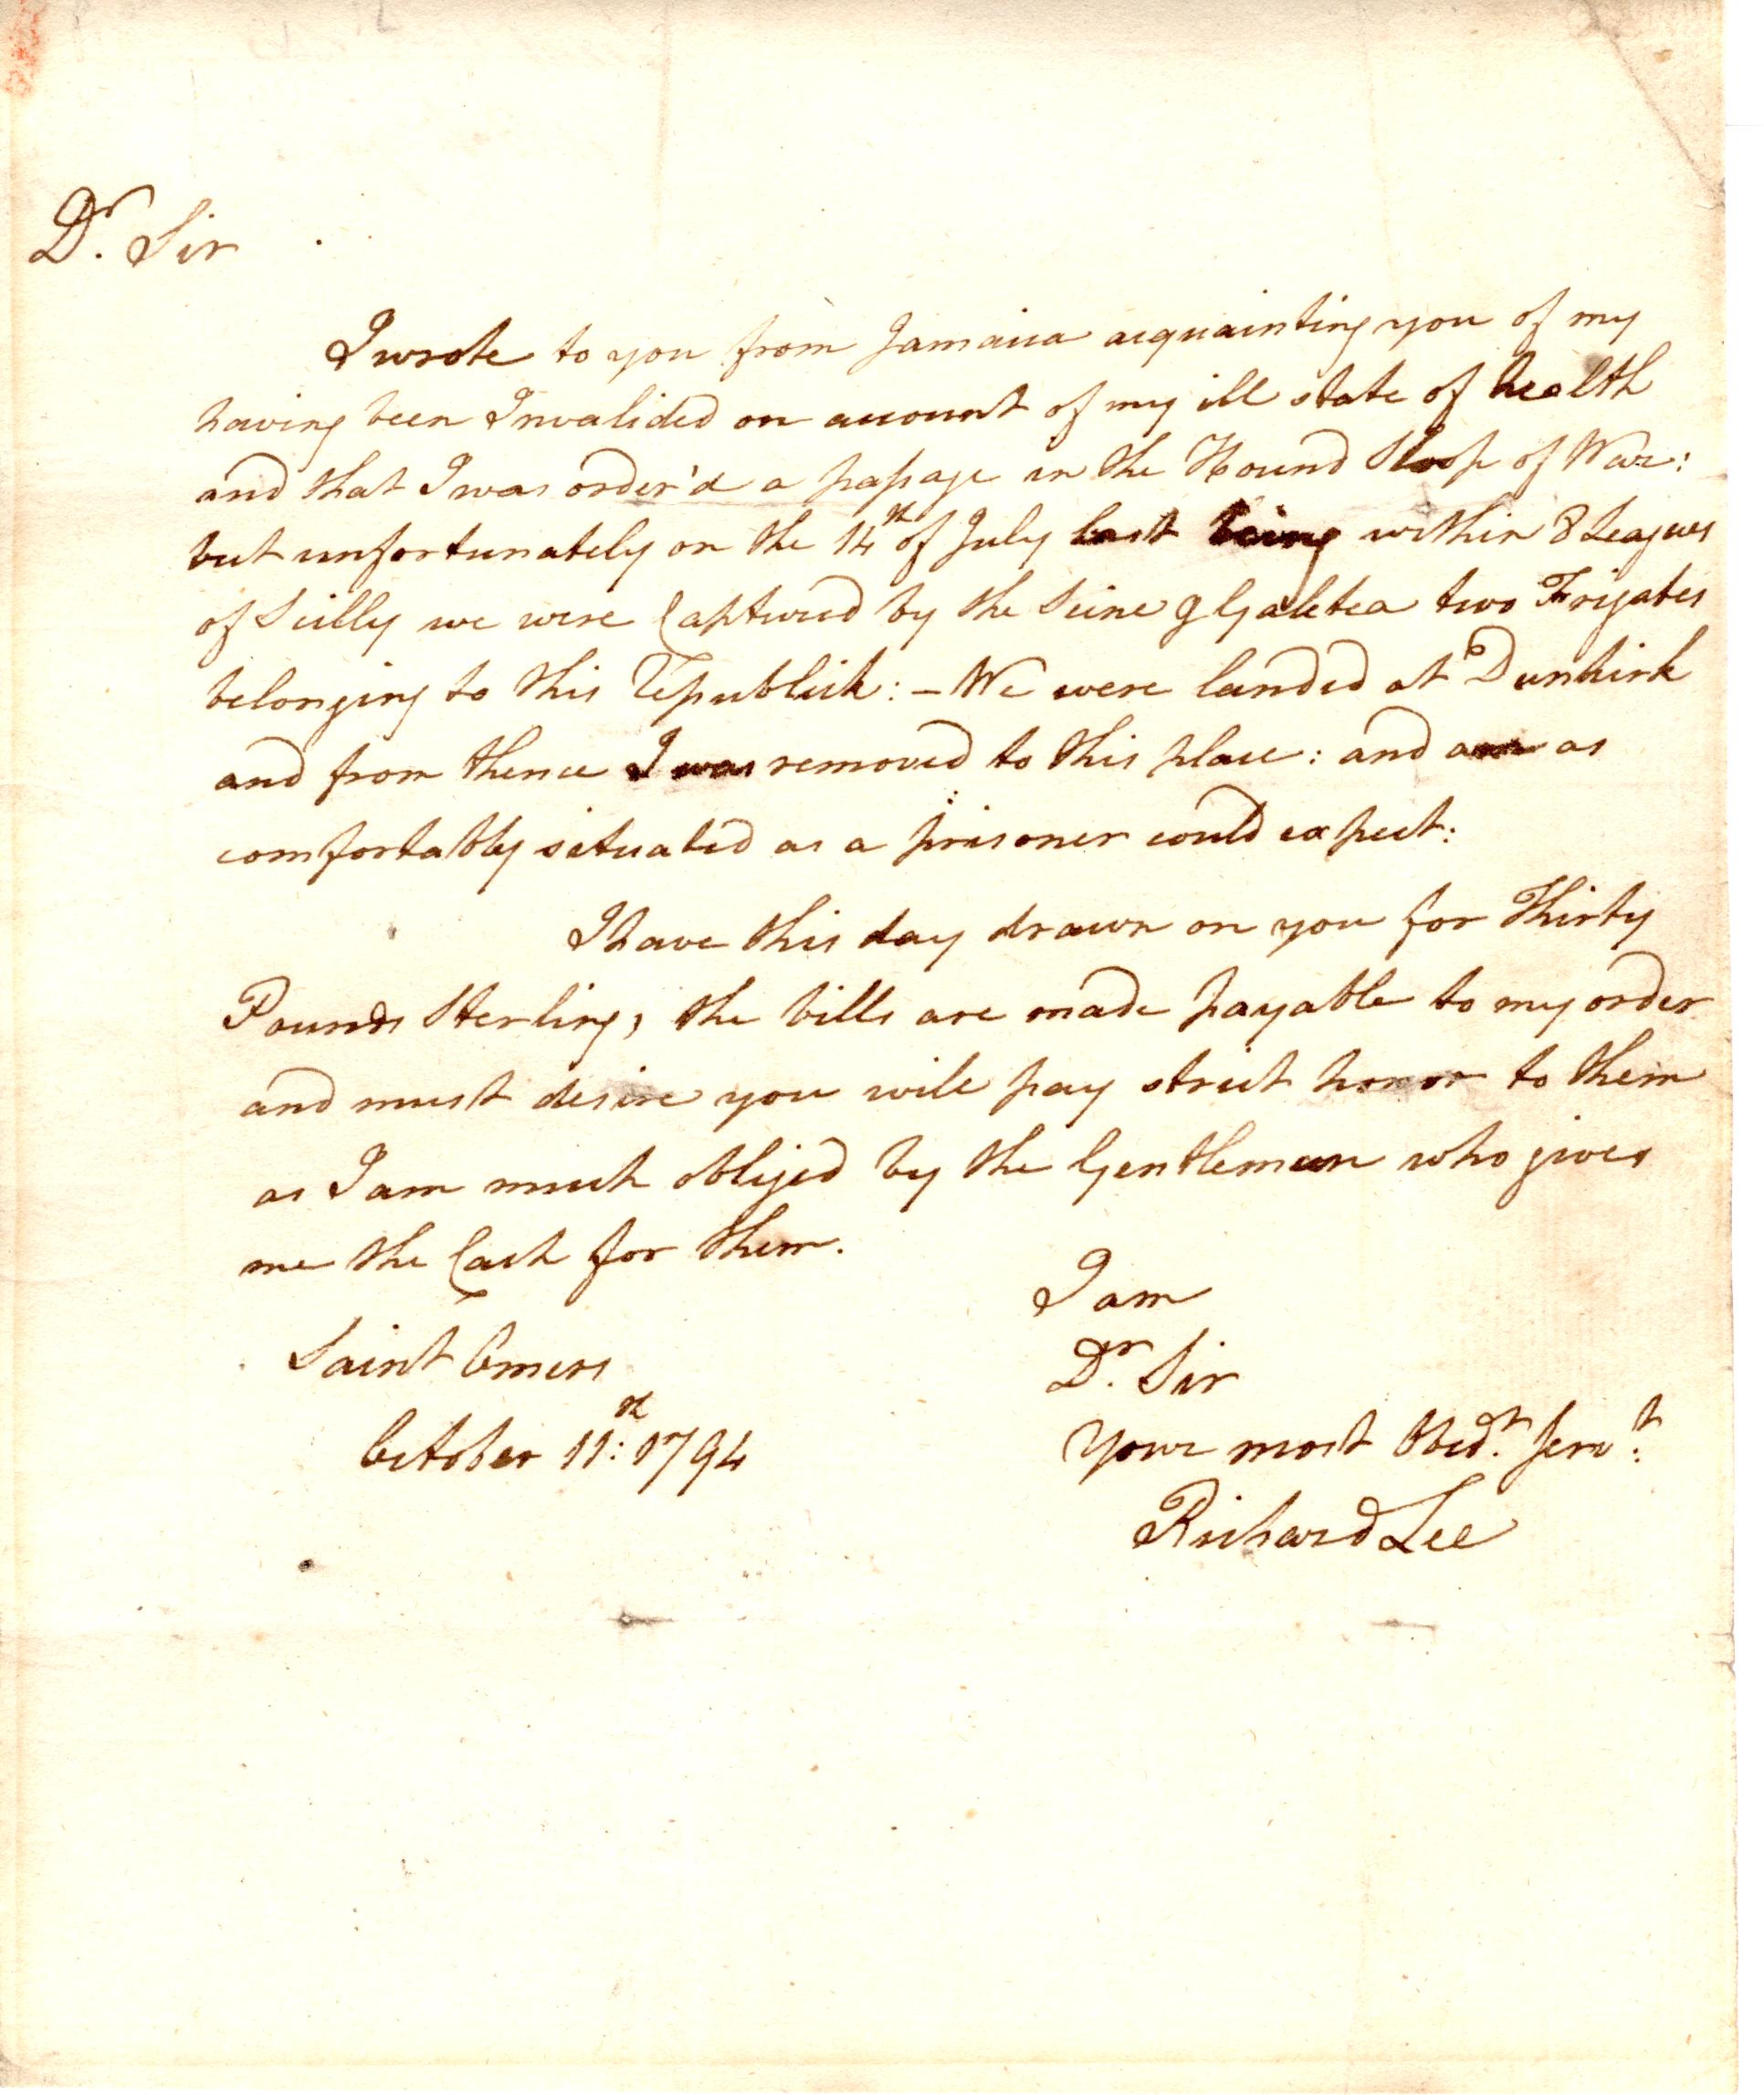 Dr. Sir
I wrote to you from Jamaica acquainting you of my
having been Invalided on account of my ill state of health
and that I was order'd a paſsage in the Hound Sloop of War:
but unfortunately on the 14th of July last being within 8 Leagues
of Scilly we were Captured by the Seine & Galetea two Frigates
belonging to this Republick: – We were landed at Dunkirk
and from thence I was removed to this place: and am as
comfortably situated as a prisoner could expect:
I have this day drawn on you for Thirty
Pounds Sterling, the bills are made payable to my order
and must desire you will pay strict honor to them
as I am much obliged by the Gentleman who gives
me the Cash for them.
I am
Saint Omers
Dr. Sir
October 11th: 1794
Your most Obedt. Servt:
Richard Lee